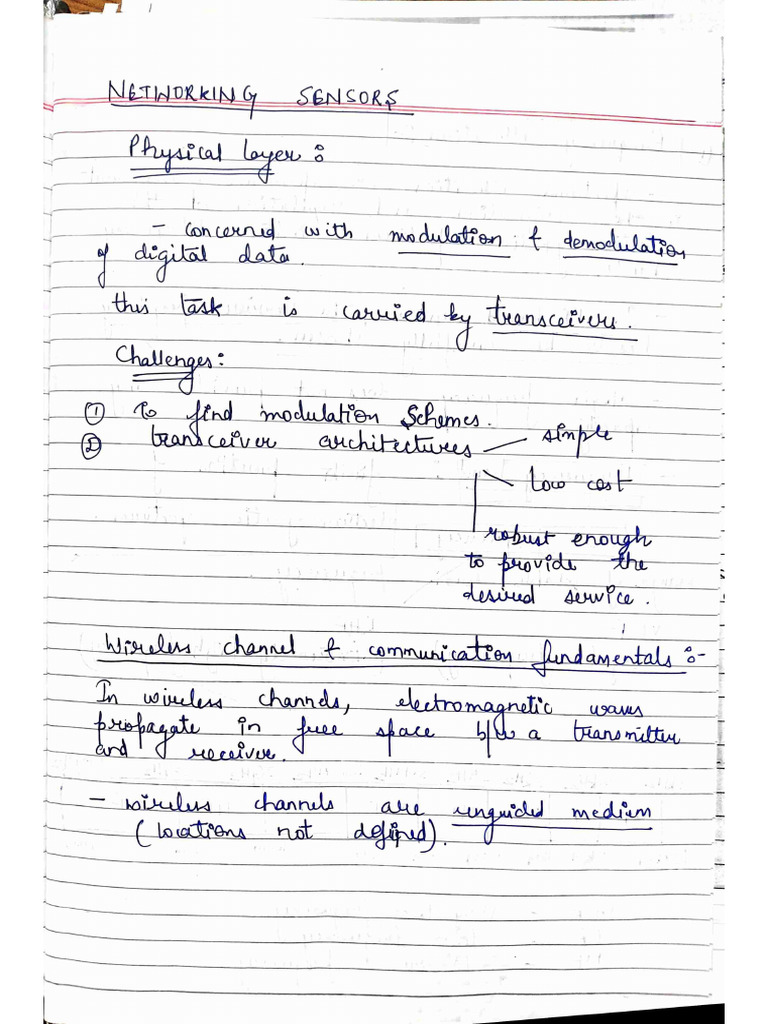 NETWORKING SENSORS
Physical layer :
- concerned with modulation & demodulation
of digital data.
this task is carried by transceivers.
Challenges :
① To find modulation schemes.
② transceiver architectures — simple
low cost
robust enough
to provide the
desired service.
Wireless channel & communication fundamentals :-
In wireless channels, electromagnetic waves
propagate in free space b/w a transmitter
and receiver.
- wireless channels are unguided medium
(locations not defined).